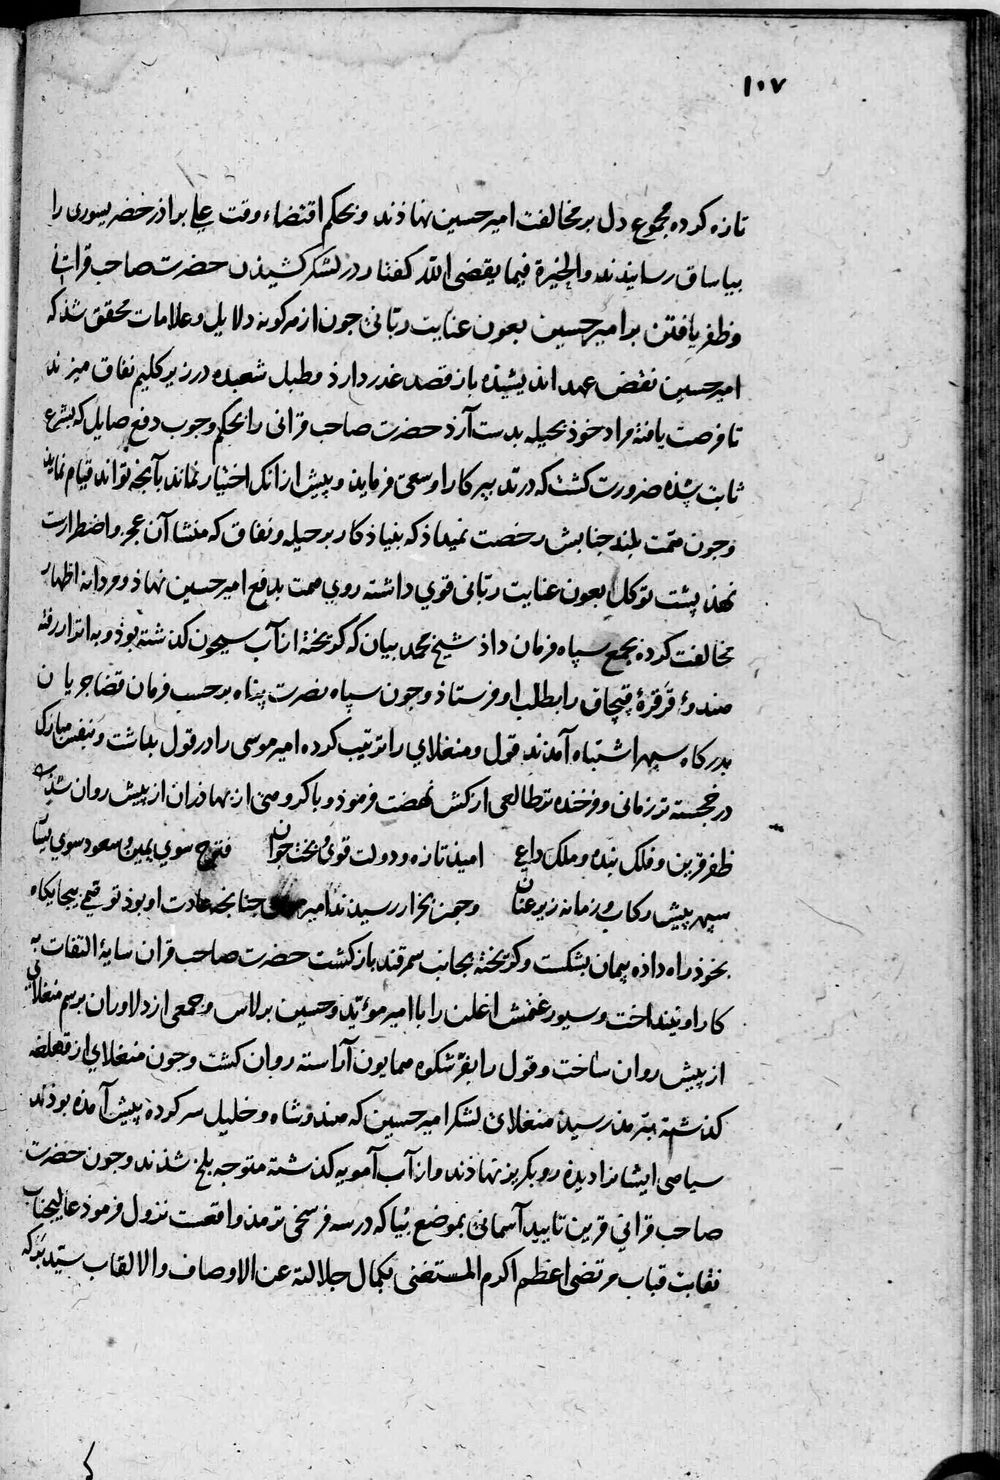 ۱۰۷
تازه کرده مجموع دل بر مخالفت امیر حسین نهاذند و بحکم اقتضاء وقت علی براذر خضر یسوری را
بیاساق رسانیدند والخیرة فیما یقضی الله کفتار در لشکر کشیدن حضرت صاحب قرانی
و ظفر یافتن بر امیر حسین بعون عنایت ربانی جون از هر کونه دلایل و علامات محقق شذ که
امیر حسین نقض عهد اندیشیذه باز قصد غدر دارذ و طبل شعبده در زیر کلیم نفاق میزند
تا فرصت یافته مراد خوذ بحیله بدست آرذ حضرت صاحب قرانی را بحکم وجوب دفع صایل که بشرع
ثابت شذه ضرورت کشت که در تدبیر کار او سعی فرماید و پیش از انک اختیار نماند بآنجه تواند قیام نماید
وجون همت بلند جنابش رخصت نمیداذ که بنیاذ کار بر حیله و نفاق که منشا آن عجز و اضطرارست
نهذ پشت توکل بعون عنایت ربانی قوی داشته روی همت بدفع امیر حسین نهاذ و مردانه اظهار
مخالفت کرده بجمع سپاه فرمان داذ شیخ محمد بیان که کریخته از آب سیحون کذشته بوذ و به اترار رفته
هندوء قرقرهٔ قبچاق را بطلب او فرستاذ وجون سپاه نصرت پناه بر حسب فرمان قضا جریان
بدرکاه سپهر اشتباه آمدند قول و منغلای را ترتیب کرده امیر موسی را در قول بداشت و بنفس مبارک
در خجسته تر زمانی و فرخنده تر طالعی از کش نهضت فرموذ و با کروهی از بهاذران از پیش روان شذ
ظفر قرین و فلک بنده و ملک داعی امید تازه و دولت قوی و بخت جوان فتوح سوی یمین و سعود سوی یسار
سپهر پیش رکاب و زمانه زیر عنان وجون بخزار رسیدند امیر موسی جنانجه عادت او بوذ توقعی بیجایکاه
بخوذ راه داذه پیمان بشکست و کریخته بجانب سمرقند باز کشت حضرت صاحب قران سایهٔ التفات به
کار او نینداخت و سیورغتمش اغلن را با امیر مؤید و حسین برلاس و جمعی از دلاوران برسم منغلای
از پیش روان ساخت و قول را بفر شکوه همایون آراسته روان کشت وجون منغلای از قهلغه
کذشته بترمذ رسید منغلای لشکر امیر حسین که هندوشاه و خلیل سر کرده پیش آمده بوذند
سیاهی ایشانرا دیده رو بکریز نهاذند و از آب آمویه کذشته متوجه بلخ شذند وجون حضرت
صاحب قرانی قرین تایید آسمانی بموضع بیا که در سه فرسخی ترمذ واقعست نزول فرموذ عالیجناب
نقابت قباب مرتضی اعظم اکرم المستغنی بکمال جلالته عن الاوصاف والالقاب سید برکه